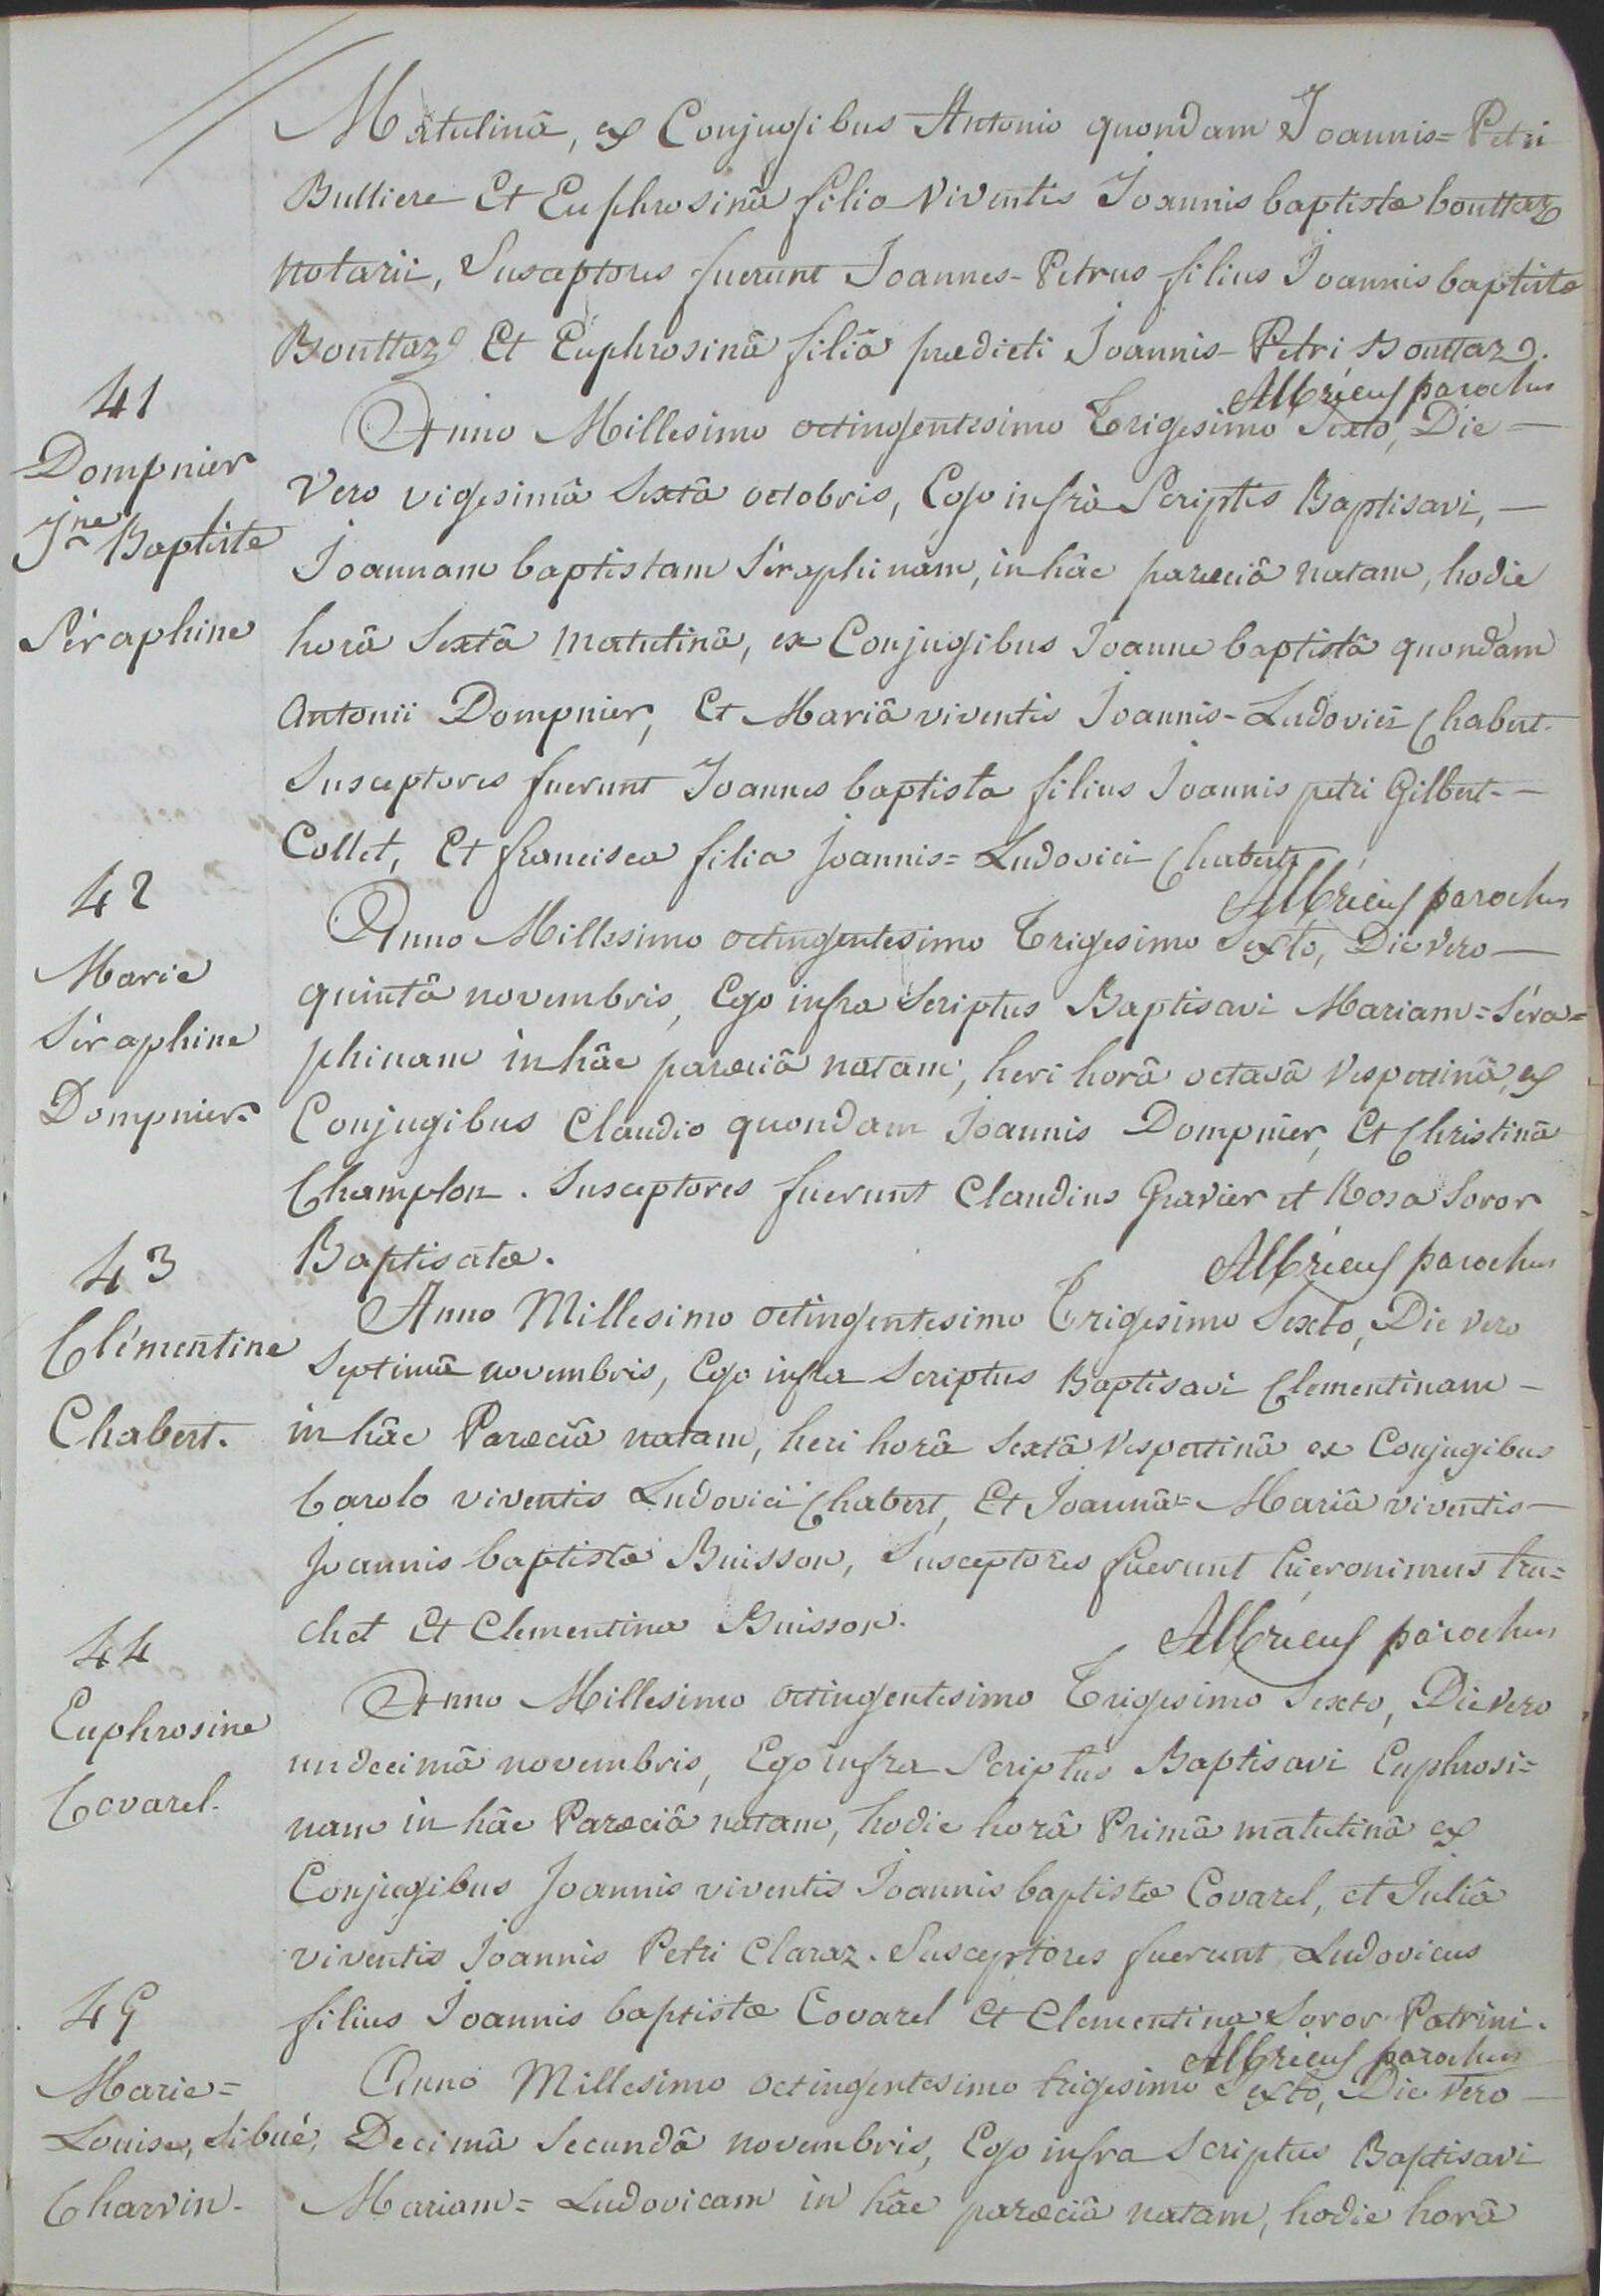 Matulinâ, ex Conjugibus Antonio quondam Joannis=Petri
Bulliere Et Euphrosinâ filia Viventis Joannis baptistæ bouttaz
Notarii, Susceptores fuerunt Joannes-Petrus filius Joannis baptistæ
Bouttaz Et Euphrosinâ filiâ prædicti Joannis-Petri Bouttaz.
Albrieux parochus
41
Dompnier
Jne Baptiste
Séraphine
Anno Millesimo octingentesimo Trigesimo Sexto, Die—
Vero vigesimâ Sextâ octobris, Ego infrà Scriptus Baptisavi,—
Joannam baptistam Séraphinam, in hâc parœciâ natam, hodie
horâ Sextâ matutinâ, ex Conjugibus Joanne baptistâ quondam
Antonii Dompnier, Et Mariâ viventis Joannis-Ludovici Chabert.
Susceptores fuerunt Joannes baptista filius Joannis petri Gilbert-—
Collet, Et francisca filia Joannis=Ludovici Chabert.
Albrieux parochus
42
Marie
Séraphine
Dompnier.
Anno Millesimo octingentesimo Trigesimo Sexto, Die Vero—
quintâ novembris, Ego infra Scriptus Baptisavi Mariam=Séra=
phinam in hâc parœciâ natam, heri horâ octavâ Vespertinâ, ex
Conjugibus Claudio quondam Joannis Dompnier, Et Christinâ
Champlon. Susceptores fuerunt Claudius Gravier et Rosa Soror
Baptisatæ.
Albrieux parochus
43
Clémentine
Chabert.
Anno Millesimo octingentesimo Trigesimo Sexto, Die vero
Septimâ novembris, Ego infra Scriptus Baptisavi Clementinam—
in hâc Parœciâ natam, heri horâ Sextâ Vespertinâ ex Conjugibus
Carolo viventis Ludovici Chabert, Et Joannâ=Mariâ viventis—
Joannis baptistæ Buisson, Susceptores fuerunt hieronimus tru=
chet Et Clementina Buisson.
Albrieux parochus
44
Euphrosine
Covarel.
Anno Millesimo octingentesimo Trigesimo Sexto, Die Vero
undecimâ novembris, Ego infra Scriptus Baptisavi Euphrosi=
nam in hâc Parœciâ natam, hodie horâ Primâ matutinâ ex
Conjugibus Joannis viventis Joannis baptistæ Covarel, et Juliâ
viventis Joannis Petri Claraz. Susceptores fuerunt Ludovicus
filius Joannis baptistæ Covarel Et Clementina Soror Patrini.
Albrieux parochus
45
Marie=
Louise, Sibué,
Charvin.
Anno Millesimo octingentesimo trigesimo Sexto, Die Vero—
Decimâ Secundâ novembris, Ego infra Scriptus Baptisavi
Mariam=Ludovicam in hâc parœciâ natam, hodie horâ